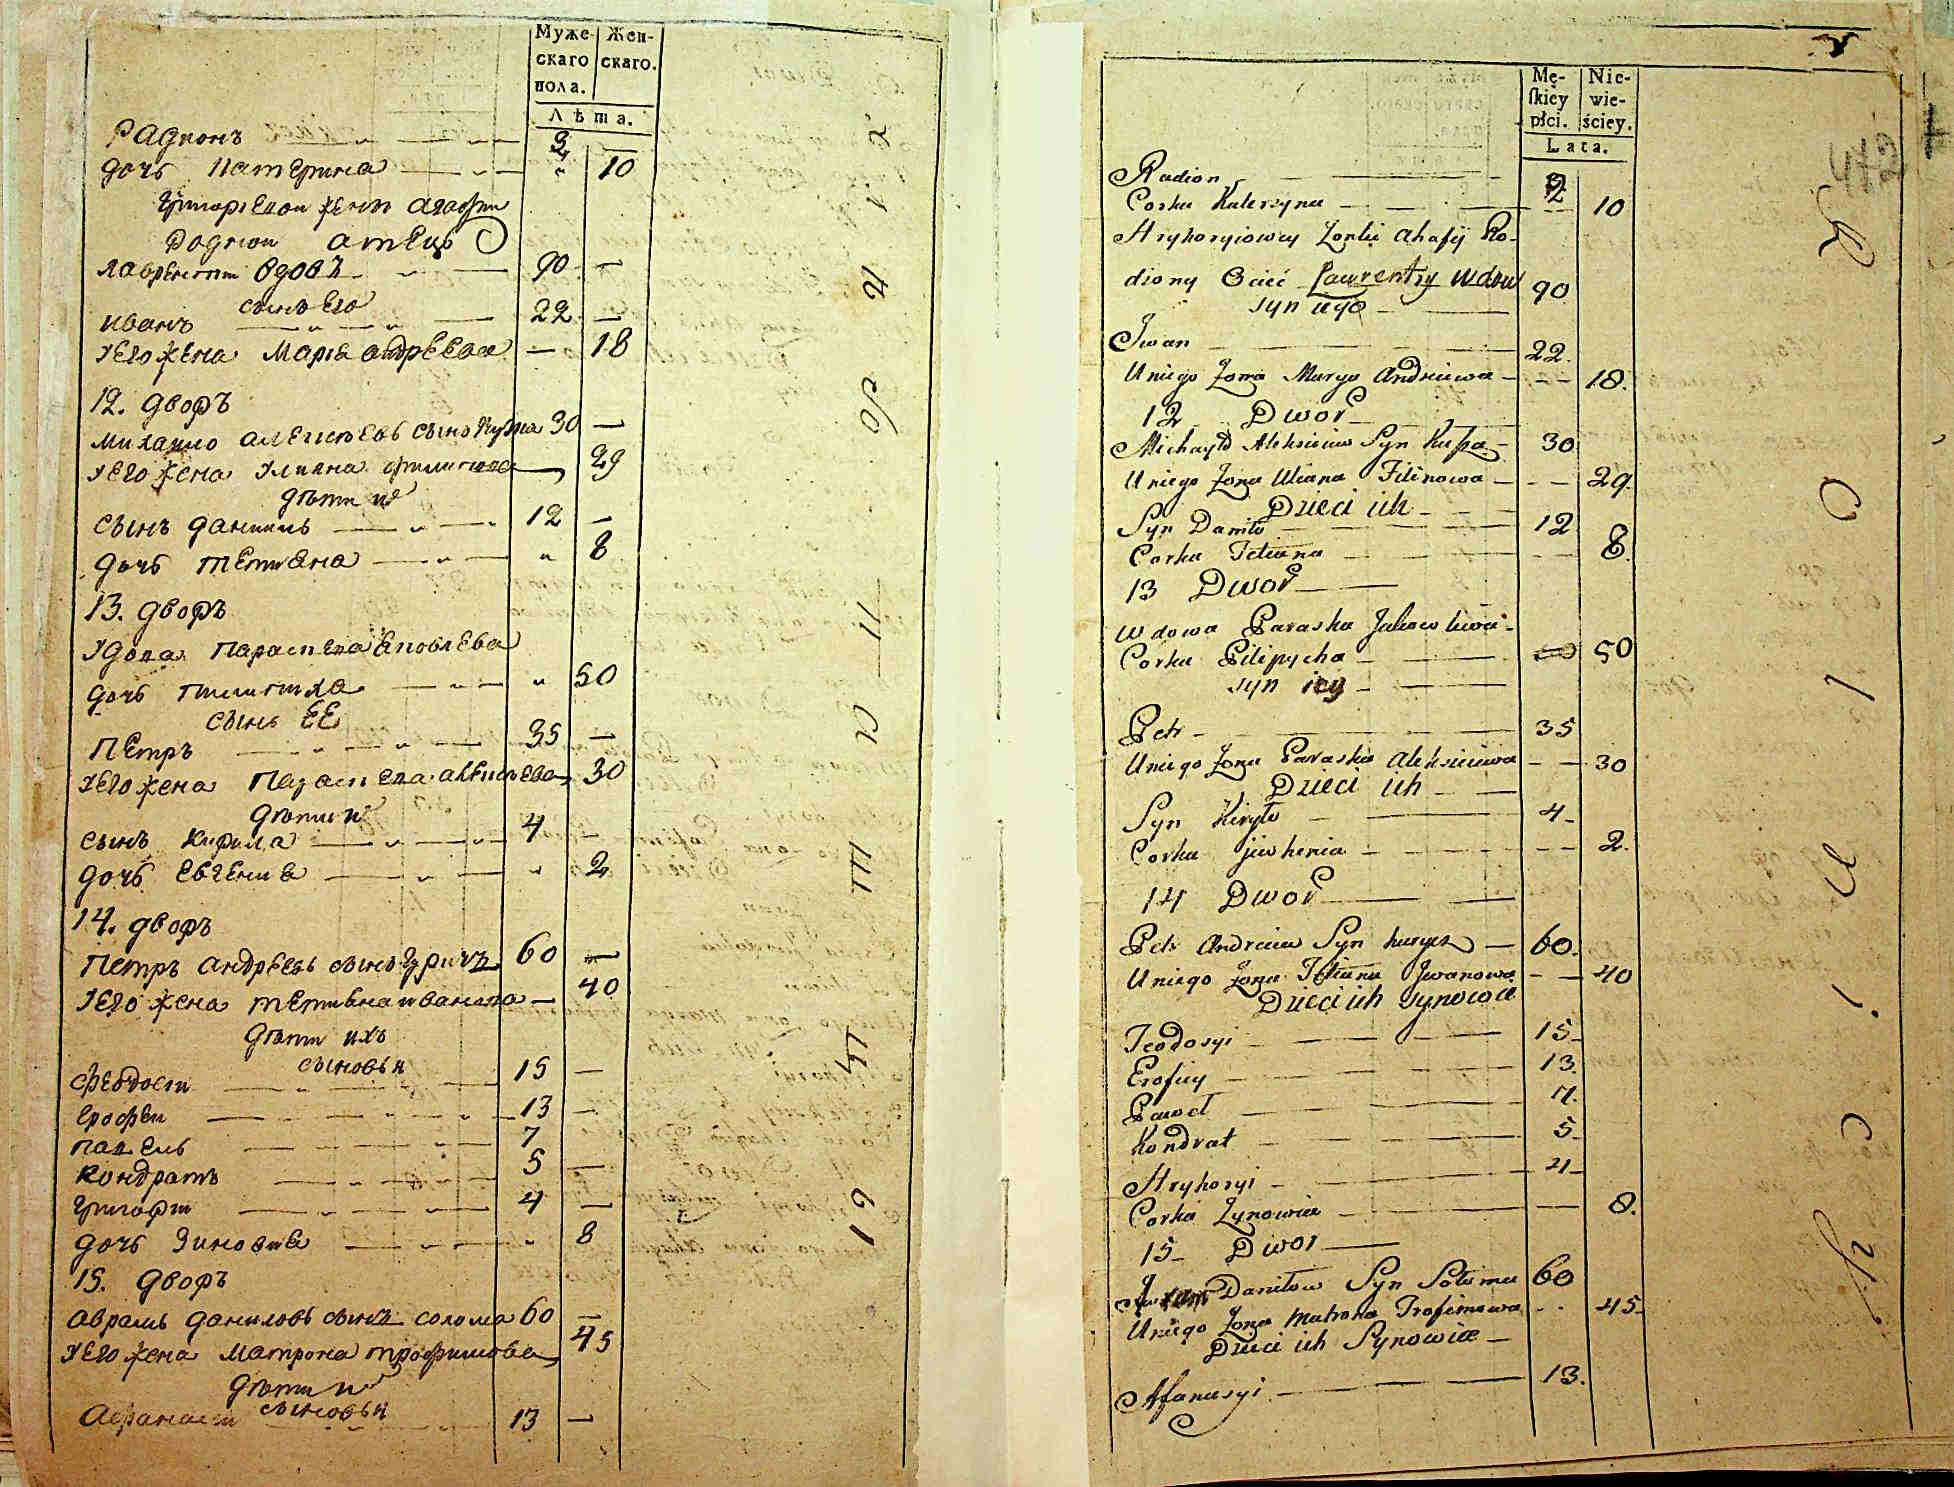 Муже-
скаго
пола.
Жен-
скаго.
Лѣта.
Радионъ 2
дочь Катерина 10
григориевои жены агафии
родион атецъ
лаврентии вдовъ 90
сынъ его
иванъ 22
у его жена Маря андреева 18
12. дворъ
михаило алексеевъ сынъ Купа 30
у его жена улияна филипова 29
дѣти их
сынъ данииль 12
дочь тетиана 8
13. дворъ
удова параскева Яковлева
дочь пилипиха 50
сынъ ее
петръ 35
у его жена параскева алексеева 30
дѣти их
сынъ кирила 4
дочь евгения 2
14. дворъ
петръ андреевъ сынъ гурич 60
у его жена тетияна иванова 40
дѣти ихъ
сыновьи
феодосии 15
ерофеи 13
павель 7
кондратъ 5
григории 4
дочь зиновия 8
15. дворъ
аврамъ даниловъ сынъ солома 60
у его жена матрона трофимова 45
дѣти их
сыновьи
афанасии 13
Mę-
skiey
płci.
Nie-
wie-
ściey.
Lata.
412
Radion 2
Corka Katerzyna 10
Hryhoryiowey Zonki ahafij Ro-
diony Ociec Laurenty wdow 90
syn iego
Iwan 22
U niego Zona Marya Andreiewa 18.
12 Dwor
Michayło Alexieiew Syn Kupa 30
U niego Zona Uliana Filinowa 29.
Dzieci ich
Syn Daniło 12
Corka Tetiana 8.
13 Dwor
Wdowa Paraska Jakowliwa
Corka Pilipycha 50
syn iey
Petr 35
U niego Zona Paraska Aleksieiwa 30
Dzieci ich
Syn Kiryło 4
Corka jewhenia 2.
14 Dwor
Petr Andreiew Syn hurycz 60.
U niego Zona Tetiana Jwanowa 40
Dzieci ich synowie
Teodosyi 15
Erofiey 13.
Paweł 7.
Kondrat 5
Hryhoryi 4
Corka Zynowia 8.
15 Dwor
Awram Daniłow Syn Sołoma 60
U niego Zona Matrona Trofimowa 45
Dzieci ich Synowie
Afanasyi 13.